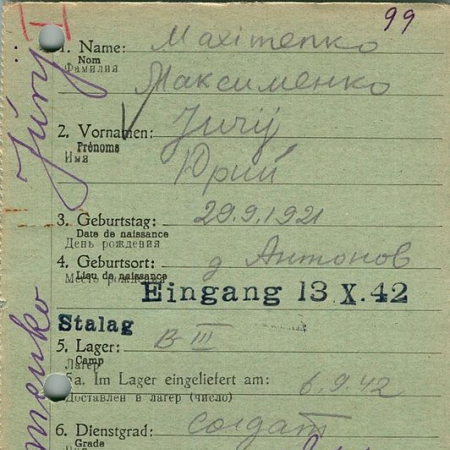 99
1. Name: Maximenko
Nom
Фамилия
Максименко
2. Vornamen: Jurij
Prénoms
Имя
Юрий
3. Geburtstag: 29.9.1921
Date de naissance
День рождения
4. Geburtsort: д Антонов
Lieu de naissance
Место рождения
Eingang 13 X. 42
Stalag
5. Lager: B III
Camp
Лагерь
5a. Im Lager eingeliefert am: 6.9.42
Доставлен в лагерь (число)
6. Dienstgrad: солдат
Grade
Jurij
menko